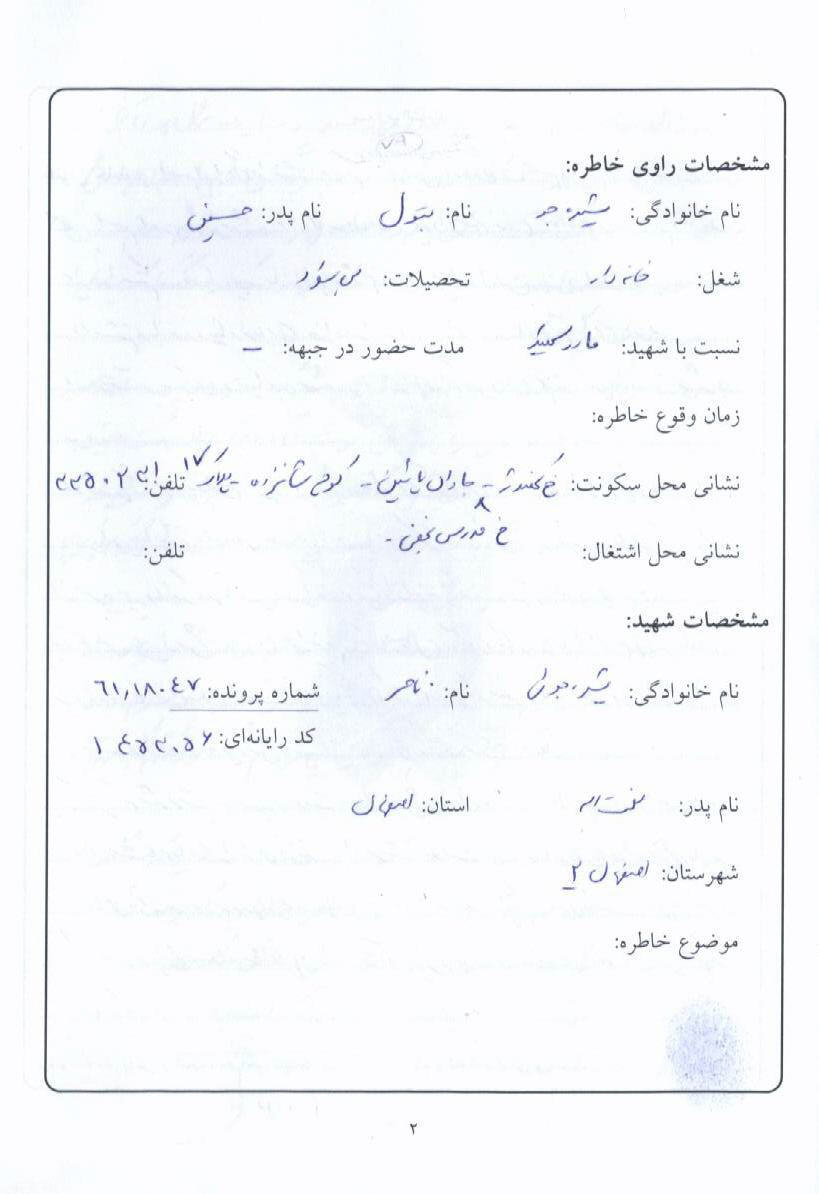 مشخصات راوی خاطره:
نام خانوادگی: نام: بتول نام پدر: حسین
شغل: خانه دار تحصیلات: بی سواد
نسبت با شهید: مادر شهید مدت حضور در جبهه: –
زمان وقوع خاطره:
نشانی محل سکونت: خ - پائین - کوچه شانزده - پلاک ۱۷ تلفن:
خ مدرس نجفی -
نشانی محل اشتغال: تلفن:
مشخصات شهید:
نام خانوادگی: نام: ناصر شماره پرونده: ۶۱/۱۸۰۴۷
کد رایانه‌ای: ۱۴۵۳۰۵۶
نام پدر: نعمت اله استان: اصفهان
شهرستان: اصفهان ۲
موضوع خاطره:
۲